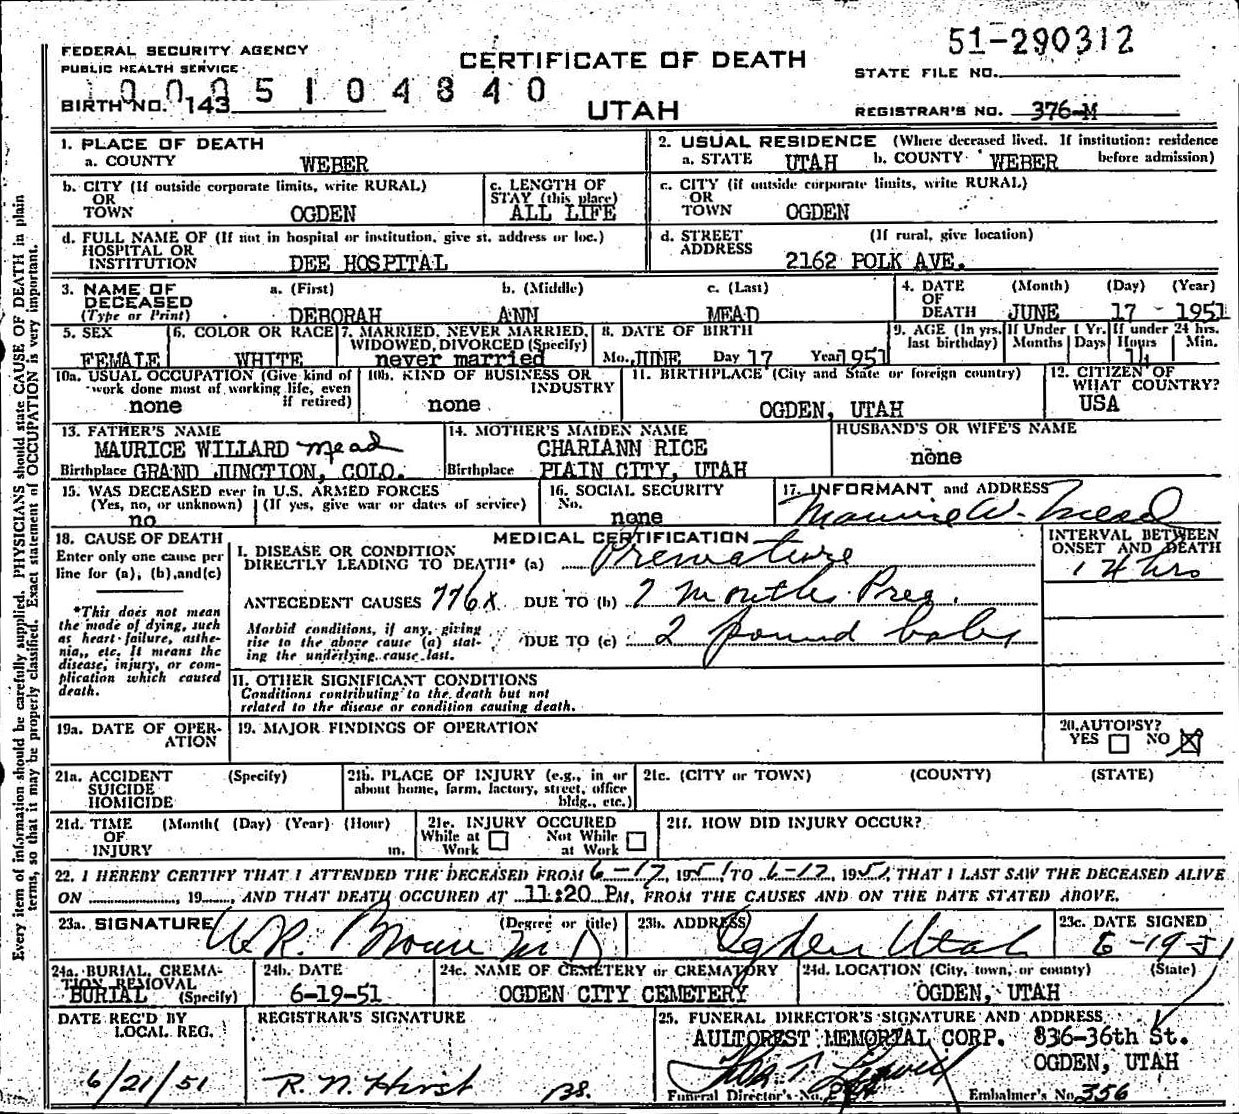 51-290312
FEDERAL SECURITY AGENCY
PUBLIC HEALTH SERVICE
CERTIFICATE OF DEATH
STATE FILE NO.
1 0 0 0 5 1 0 4 8 4 0
BIRTH NO. 143
UTAH
REGISTRAR'S NO. 376-M
1. PLACE OF DEATH
a. COUNTY WEBER
2. USUAL RESIDENCE (Where deceased lived. If institution: residence before admission)
a. STATE UTAH b. COUNTY WEBER
b. CITY (If outside corporate limits, write RURAL)
OR
TOWN OGDEN
c. LENGTH OF
STAY (this place)
ALL LIFE
c. CITY (if outside corporate limits, write RURAL)
OR
TOWN OGDEN
d. FULL NAME OF (If not in hospital or institution, give st. address or loc.)
HOSPITAL OR
INSTITUTION DEE HOSPITAL
d. STREET (If rural, give location)
ADDRESS 2162 POLK AVE.
3. NAME OF DECEASED
(Type or Print)
a. (First) b. (Middle) c. (Last)
DEBORAH ANN MEAD
4. DATE OF DEATH (Month) (Day) (Year)
JUNE 17 - 1951
5. SEX
FEMALE
6. COLOR OR RACE
WHITE
7. MARRIED, NEVER MARRIED,
WIDOWED, DIVORCED (Specify)
never married
8. DATE OF BIRTH
Mo. JUNE Day 17 Year 1951
9. AGE (In yrs. last birthday)
If Under 1 Yr.
Months Days
If under 24 hrs.
Hours Min.
14
10a. USUAL OCCUPATION (Give kind of
work done most of working life, even
if retired)
none
10b. KIND OF BUSINESS OR
INDUSTRY
none
11. BIRTHPLACE (City and State or foreign country)
OGDEN, UTAH
12. CITIZEN OF
WHAT COUNTRY?
USA
13. FATHER'S NAME
MAURICE WILLARD Mead
Birthplace GRAND JUNCTION, COLO.
14. MOTHER'S MAIDEN NAME
CHARIANN RICE
Birthplace PLAIN CITY, UTAH
HUSBAND'S OR WIFE'S NAME
none
15. WAS DECEASED ever in U.S. ARMED FORCES
(Yes, no, or unknown) (If yes, give war or dates of service)
no
16. SOCIAL SECURITY
No.
none
17. INFORMANT and ADDRESS
Maurice W. Mead
18. CAUSE OF DEATH
Enter only one cause per
line for (a), (b), and (c)
*This does not mean
the mode of dying, such
as heart failure, asthe-
nia,, etc. It means the
disease, injury, or com-
plication which caused
death.
MEDICAL CERTIFICATION
INTERVAL BETWEEN
ONSET AND DEATH
I. DISEASE OR CONDITION
DIRECTLY LEADING TO DEATH* (a) Premature
14 hrs
ANTECEDENT CAUSES 776X DUE TO (b) 7 months Preg.
Morbid conditions, if any, giving
rise to the above cause (a) stat-
ing the underlying cause last.
DUE TO (c) 2 pound baby
11. OTHER SIGNIFICANT CONDITIONS
Conditions contributing to the death but not
related to the disease or condition causing death.
19a. DATE OF OPER-
ATION
19. MAJOR FINDINGS OF OPERATION
20. AUTOPSY?
YES NO
21a. ACCIDENT (Specify)
SUICIDE
HOMICIDE
21b. PLACE OF INJURY (e.g., in or
about home, farm, factory, street, office
bldg., etc.)
21c. (CITY or TOWN) (COUNTY) (STATE)
21d. TIME (Month( (Day) (Year) (Hour)
OF
INJURY m.
21e. INJURY OCCURED
While at Work Not While at Work
21f. HOW DID INJURY OCCUR?
22. I HEREBY CERTIFY THAT I ATTENDED THE DECEASED FROM 6-17, 1951 TO 6-17, 1951, THAT I LAST SAW THE DECEASED ALIVE
ON ............, 19......, AND THAT DEATH OCCURED AT 11:20 PM, FROM THE CAUSES AND ON THE DATE STATED ABOVE.
23a. SIGNATURE (Degree or title)
M D
23b. ADDRESS
Ogden Utah
23c. DATE SIGNED
6-19-51
24a. BURIAL, CREMA-
TION REMOVAL
BURIAL (Specify)
24b. DATE
6-19-51
24c. NAME OF CEMETERY or CREMATORY
OGDEN CITY CEMETERY
24d. LOCATION (City, town, or county) (State)
OGDEN, UTAH
DATE REC'D BY
LOCAL REG.
6/21/51
REGISTRAR'S SIGNATURE
R. N. Hirst
25. FUNERAL DIRECTOR'S SIGNATURE AND ADDRESS
AULTOREST MEMORIAL CORP. 836-36th St.
OGDEN, UTAH
Funeral Director's No. Embalmer's No. 356
Every item of information should be carefully supplied. PHYSICIANS should state CAUSE OF DEATH in plain
terms, so that it may be properly classified. Exact statement of OCCUPATION is very important.